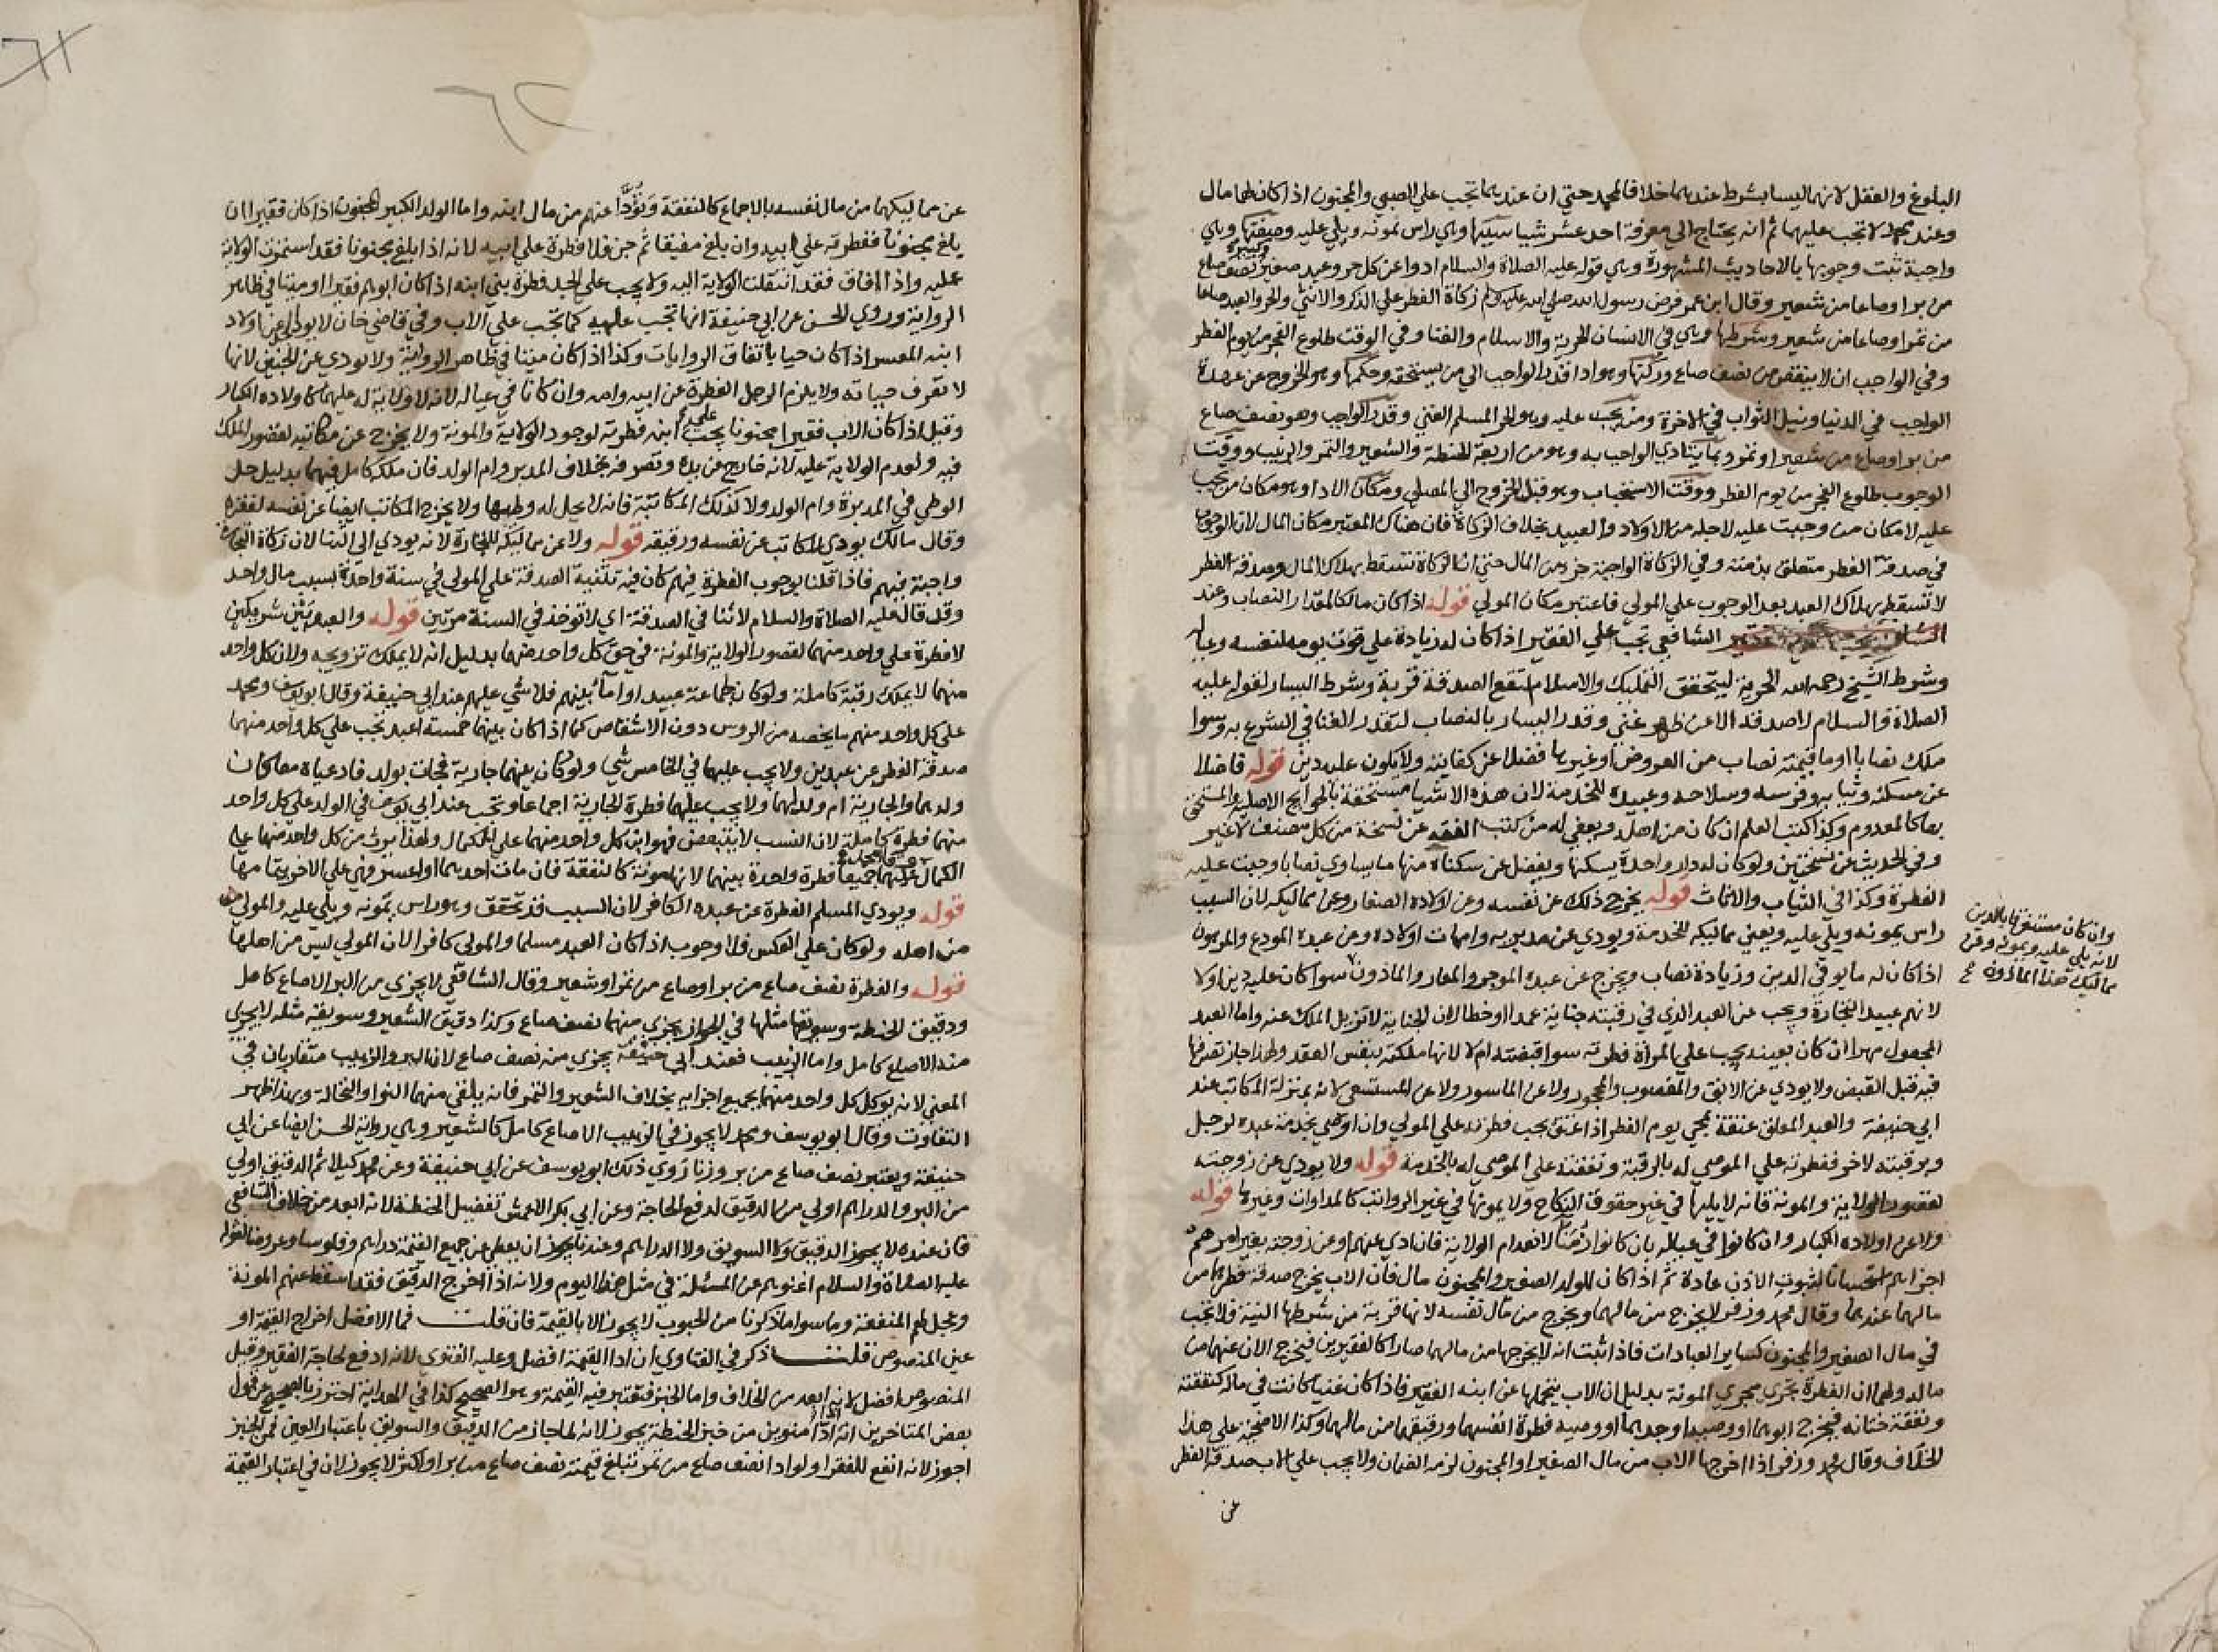 البلوغ والعقل لانهما ليسا بشرط عندهما خلافا لمحمد حتي ان عندهما تجب علي الصبي والمجنون اذا كان لهما مال
وعند محمد لا تجب عليهما ثم انه يحتاج الي معرفة احد عشر شيا سببها وهي راس يمونه ويلي عليه وصفتها وهي
واجبة ثبت وجوبها بالاحاديث المشهورة وهي قوله عليه الصلاة والسلام ادوا عن كل حر وعبد صغير وكبيرة نصف صاع
من بر او صاعا من شعير وقال ابن عمر فرض رسول الله صلي الله عليه وسلم زكاة الفطر علي الذكر والانثي والحر والعبد صاعا
من تمر او صاعا من شعير وشرطها وهي في الانسان الحرية والاسلام والغنا وفي الوقت طلوع الفجر من يوم الفطر
وفي الواجب ان لا ينقص من نصف صاع وركنها وهو اداء قدر الواجب الي من يستحقه وحكمها وهو الخروج عن عهدة
الواجب في الدنيا ونيل الثواب في الاخرة ومن يجب عليه وهو الحر المسلم الغني وقدر الواجب وهو نصف صاع
من بر او صاع من شعير او تمر وبما يتادي الواجب به وهو من اربعة الحنطة والشعير والتمر والزبيب ووقت
الوجوب طلوع الفجر من يوم الفطر ووقت الاستحباب وهو قبل الخروج الي المصلي ومكان الادا وهو مكان من تجب
عليه لا مكان من وجبت عليه لاجله من الاولاد والعبيد بخلاف الزكاة فان هناك المعتبر مكان المال لان الوجوب
في صدقة الفطر متعلق بذمته وفي الزكاة الواجبة جزء من المال حتي ان الزكاة تسقط بهلاك المال وصدقة الفطر
لا تسقط بهلاك العبد بعد الوجوب علي المولي فاعتبر مكان المولي قوله اذا كان مالكا لمقدار النصاب وعند
الشافعي تجب علي الفقير اذا كان له زيادة علي قوت يومه لنفسه وعياله
وشرط الشيخ رحمه الله الحرية ليتحقق التمليك والاسلام لتقع الصدقة قربة وشرط اليسار لقوله عليه
الصلاة والسلام لا صدقة الا عن ظهر غني وقدر اليسار بالنصاب لتقدر الغنا في الشرع به وسوا
ملك نصابا او ما قيمته نصاب من العروض او غيرها فضلا عن كفايته ولا يكون عليه دين قوله فاضلا
عن مسكنه وثيابه وفرسه وسلاحه وعبيده للخدمة لان هذه الاشيا مستحقة بالحوايج الاصلية والمستحق
بها كالمعدوم وكذا كتب العلم ان كان من اهله ويعفي له من كتب الفقه عن نسخة من كل مصنف لا غير
وفي الحديث عن نسختين ولو كان له دار واحدة يسكنها ويفضل عن سكناه منها ما يساوي نصابا وجبت عليه
الفطرة وكذا في الثياب والاثاث قوله يخرج ذلك عن نفسه وعن اولاده الصغار وعن مماليكه لان السبب
راس يمونه ويلي عليه ويعني مماليكه للخدمة ويودي عن مدبريه وامهات اولاده وعن عبده المودع والمرهون
اذا كان له ما يوفي الدين وزيادة نصاب ويخرج عن عبده الموجر والمعار والماذون سوا كان عليه دين او لا
لانهم عبيد التجارة ويجب عن العبد الذي في رقبته جناية عمدا او خطا لان الجناية لا تزيل الملك عنه واما العبد
المجعول مهرا ان كان بعينه يجب علي المراة فطرته سوا قبضته ام لا لانها ملكته بنفس العقد ولهذا جاز تصرفها
فيه قبل القبض ولا يودي عن الابق والمغصوب والمجحود ولا عن الماسور ولا عن المستسعي لانه بمنزلة المكاتب عند
ابي حنيفة والعبد المعلق عتقه بمجي يوم الفطر اذا عتق يجب فطرته علي المولي وان اوصي بخدمة عبده لرجل
وبرقبته لاخر ففطرته علي الموصي له بالرقبة ونفقته علي الموصي له بالخدمة قوله ولا يودي عن زوجته
لقصور الولاية والمونة فانه لا يليها في غير حقوق النكاح ولا يمونها في غير الرواتب كالمداوات وغيرها قوله
ولا عن اولاده الكبار وان كانوا في عياله بان كانوا زمنا لانعدام الولاية فان ادي عنهم او عن زوجته بغير امرهم
اجزاهم استحسانا لثبوت الاذن عادة ثم اذا كان للولد الصغير والمجنون مال فان الاب يخرج صدقة فطرها من
مالهما عندهما وقال محمد وزفر لا يخرج من مالهما ويخرج من مال نفسه لانها قربة من شرطها النية فلا تجب
في مال الصغير والمجنون كساير العبادات فاذا ثبت انه لا يخرجها من مالهما صارا كالفقيرين فيخرج الاب عنهما من
ماله ولهما ان الفطرة تجري مجري المونة بدليل ان الاب يتحملها عن ابنه الفقير فاذا كان غنيا كانت في ماله كنفقته
ونفقة ختانه فيخرج ابوهما او وصيه او جدهما او وصيه فطرة انفسهما ورقيقهما من مالهما وكذا الاضحية علي هذا
الخلاف وقال محمد وزفر اذا اخرجها الاب من مال الصغير او المجنون لزمه الضمان ولا يجب علي الاب صدقة الفطر
عن
وان كان مستغرقا بالدين
لانه يلي عليه ويمونه وعن
مماليك هذا الماذون
عن مماليكهما من مال نفسه بالاجماع كالنفقة ويؤدا عنهم من مال ابنه واما الولد الكبير المجنون اذا كان فقيرا ان
بلغ مجنونا ففطرته علي ابيه وان بلغ مفيقا ثم جن فلا فطرة علي ابيه لانه اذا بلغ مجنونا فقد استمرت الولاية
عليه واذا افاق فقد انتقلت الولاية اليه ولا يجب علي الجد فطرة بني ابنه اذا كان ابوهم فقيرا او ميتا في ظاهر
الرواية وروي الحسن عن ابي حنيفة انها تجب عليه كما تجب علي الاب وفي قاضي خان لا يودي عن اولاد
ابنه المعسر اذا كان حيا باتفاق الروايات وكذا اذا كان ميتا في ظاهر الرواية ولا يودي عن الجنين لانها
لا تعرف حياته ولا يلزم الرجل الفطرة عن ابيه وامه وان كانا في عياله لانه لا ولاية له عليهما كاولاده الكبار
وقيل اذا كان الاب فقيرا مجنونا يجب علي ابنه فطرته لوجود الولاية والمونة ولا يخرج عن مكاتبه لقصور الملك
فيه ولعدم الولاية عليه لانه خارج عن يده وتصرفه بخلاف المدبر وام الولد فان ملكه كامل فيهما بدليل حل
الوطي في المدبرة وام الولد ولا كذلك المكاتبة فانه لا يحل له وطيها ولا يخرج المكاتب ايضا عن نفسه لفقره
وقال مالك يودي المكاتب عن نفسه ورقيقه قوله ولا عن مماليكه للتجارة لانه يودي الي الثنا لان زكاة التجارة
واجبة فيهم فاذا قلنا بوجوب الفطرة فيهم كان فيه تثنية الصدقة علي المولي في سنة واحدة بسبب مال واحد
وقد قال عليه الصلاة والسلام لا ثنا في الصدقة اي لا توخذ في السنة مرتين قوله والعبد بين شريكين
لا فطرة علي واحد منهما لقصور الولاية والمونة في حق كل واحد منهما بدليل انه لا يملك تزويجه ولان كل واحد
منهما لا يملك رقبة كاملة ولو كان لجماعة عبيد او اما بينهم فلا شي عليهم عند ابي حنيفة وقال ابو يوسف ومحمد
علي كل واحد منهم ما يخصه من الروس دون الاشقاص كما اذا كان بينهما خمسة اعبد تجب علي كل واحد منهما
صدقة الفطر عن عبدين ولا يجب عليهما في الخامس شي ولو كان بينهما جارية فجات بولد فادعياه معا كان
ولدهما والجارية ام ولدلهما ولا يجب عليهما فطرة الجارية اجماعا وتجب عند ابي يوسف في الولد علي كل واحد
منهما فطرة كاملة لان النسب لا يتبعض فهو ابن كل واحد منهما علي الكمال ولهذا يرث من كل واحد منهما علي
الكمال وقال محمد عليهما جميعا فطرة واحدة بينهما لانها مونة كالنفقة فان مات احدهما او اعسر فهي علي الاخر بتمامها
قوله ويودي المسلم الفطرة عن عبده الكافر لان السبب قد تحقق وهو راس يمونه ويلي عليه والمولي
من اهله ولو كان علي العكس فلا وجوب اذا كان العبد مسلما والمولي كافرا لان المولي ليس من اهلها
قوله والفطرة نصف صاع من بر او صاع من تمر او شعير وقال الشافعي لا يجزي من البر الا صاع كامل
ودقيق الحنطة وسويقها مثلها في الجواز يجزي منهما نصف صاع وكذا دقيق الشعير وسويقه مثله لا يجزي
منه الا صاع كامل واما الزبيب فعند ابي حنيفة يجزي منه نصف صاع لان البر والزبيب متقاربان في
المعني لانه يوكل كل واحد منهما بجميع اجزايه بخلاف الشعير والتمر فانه يلقي منهما النوا والنخالة وبهذا ظهر
التفاوت وقال ابو يوسف ومحمد لا يجوز في الزبيب الا صاع كامل كالشعير وهي رواية الحسن ايضا عن ابي
حنيفة ويعتبر نصف صاع من بر وزنا روي ذلك ابو يوسف عن ابي حنيفة وعن محمد كيلا ثم الدقيق اولي
من البر والدراهم اولي من الدقيق لدفع الحاجة وعن ابي بكر الاعمش تفضيل الحنطة لانه ابعد من خلاف الشافعي
فان عنده لا يجوز الدقيق ولا السويق ولا الدراهم وعندنا يجوز ان يعطي عن جميع القيمة دراهم وفلوسا وعروضا لقوله
عليه الصلاة والسلام اغنوهم عن المسئلة في مثل هذا اليوم ولانه اذا اخرج الدقيق فقد اسقط عنهم المونة
وعجل لهم المنفعة وما سوا ما ذكرنا من الحبوب لا يجوز الا بالقيمة فان قلت فما الافضل اخراج القيمة او
عين المنصوص قلت ذكر في الفتاوي ان ادا القيمة افضل وعليه الفتوي لانه ادفع لحاجة الفقير وقيل
المنصوص افضل لانه ابعد من الخلاف واما الخبز فتعتبر فيه القيمة وهو الصحيح كذا في الهداية احترز بالصحيح عن قول
بعض المتاخرين انه اذا ادا منوين من خبز الحنطة يجوز لانه لما جاز من الدقيق والسويق باعتبار العين فمن الخبز
اجوز لانه انفع للفقرا ولو ادا نصف صاع من تمر تبلغ قيمته نصف صاع من بر او اكثر لا يجوز لان في اعتبار القيمة